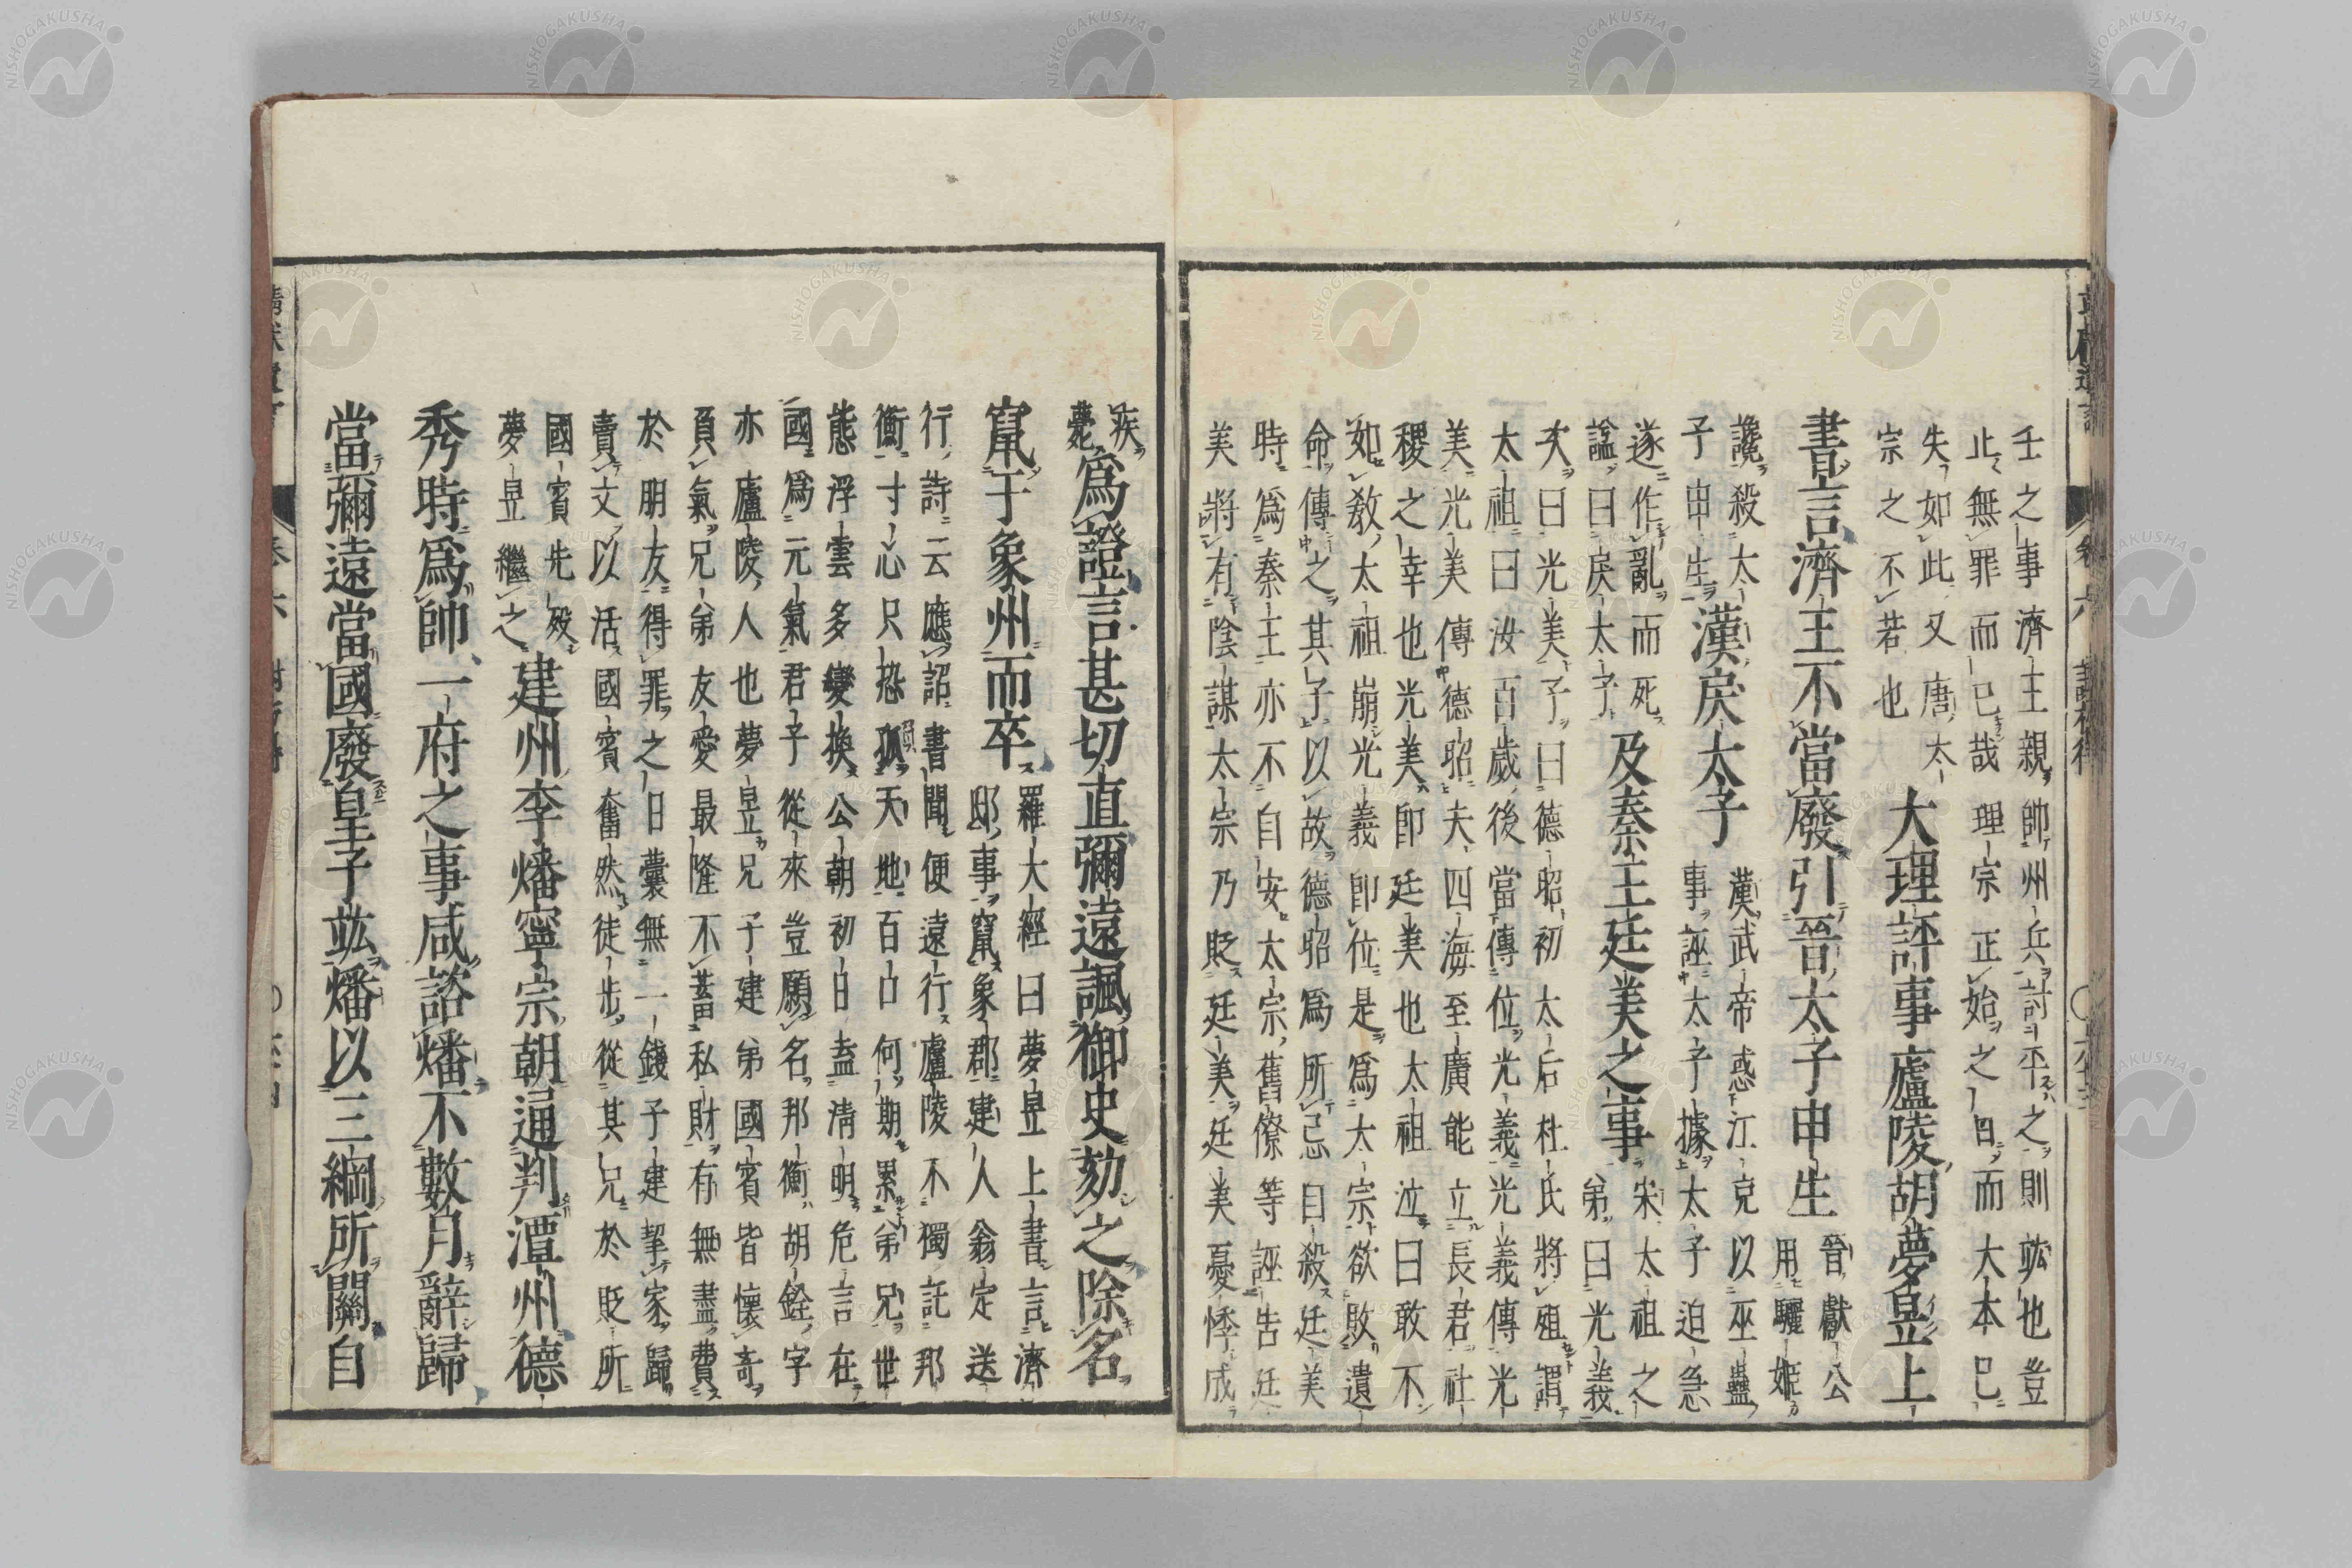 壬之事濟王親帥州兵討平之則竑也豈
止無罪而已哉理宗正始之日而大本已
失如此又唐太
宗之不若也
大理評事廬陵胡夢昱上
書言濟王不當廢引晉太子申生
晉獻公
用驪姬
讒殺太
子申生
漢戾太子
漢武帝惑江克以巫蠱
事誣太子據太子迫急
遂作亂而死
諡曰戾太子
及秦王廷美之事
宋太祖之
弟曰光義
次曰光美子曰德昭初太后杜氏將殂謂
太祖曰汝百歲後當傳位光義光義傳光
美光美傳德昭夫四海至廣能立長君社
稷之幸也光美卽廷美也太祖泣曰敢不
如教太祖崩光義卽位是爲太宗欲敗遺
命傳之其子以故德昭爲所忌自殺廷美
時爲秦王亦不自安太宗舊僚等誣告廷
美將有陰謀太宗乃貶廷美廷美憂悸成
疾
薨
爲證言甚切直彌遠諷御史劾之除名
竄于象州而卒
羅大經曰夢昱上書言濟
邸事竄象郡建人翁定送
行詩云應詔書聞便遠行廬陵不獨託邦
衡寸心只恐孤天地百口何期累弟兄世
態浮雲多變換公朝初日盍清明危言在
國爲元氣君子從來豈願名邦衡胡銓字
亦廬陵人也夢昱兄子建弟國賓皆懷奇
負氣兄弟友愛最隆不蓄私財有無盡費
於朋友得罪之日囊無一錢子建挈家歸
賣文以活國賓奮然徒步從其兄於貶所
國賓先歿
夢昱繼之
建州李燔寧宗朝通判潭州德
秀時爲帥一府之事咸諮燔不數月辭歸
當彌遠當國廢皇子竑燔以三綱所關自